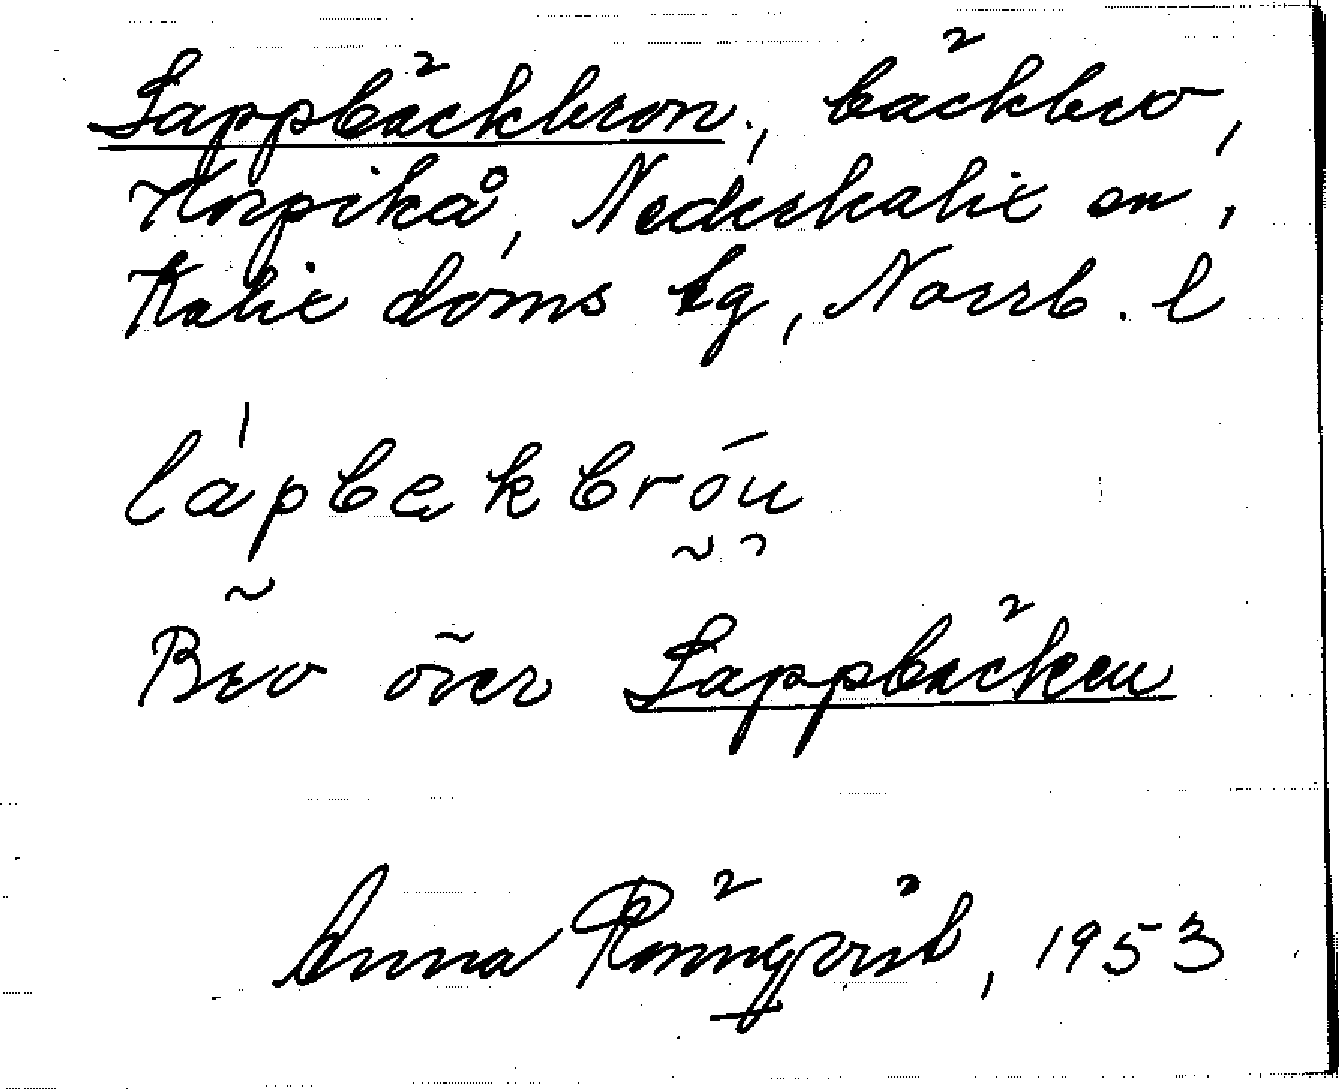 Lappbäckbron, bäckbro,
Korpikå, Nederkalix sn,
Kalix doms lg, Norrb. l
Bro över Lappbäcken
Anna Rönnqvist, 1953